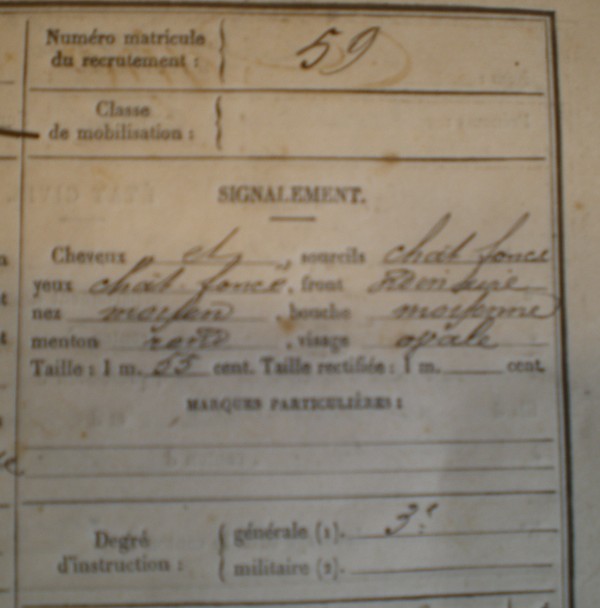 Numéro matricule
du recrutement : 59
Classe
de mobilisation :
SIGNALEMENT.
Cheveux et, sourcils chât foncé
yeux chât. foncé, front ordinaire
nez moyen, bouche moyenne
menton rond, visage ovale
Taille : 1 m. 55 cent. Taille rectifiée : 1 m. cent.
MARQUES PARTICULIÈRES :
Degré
d'instruction :
générale (1). 3
militaire (2).